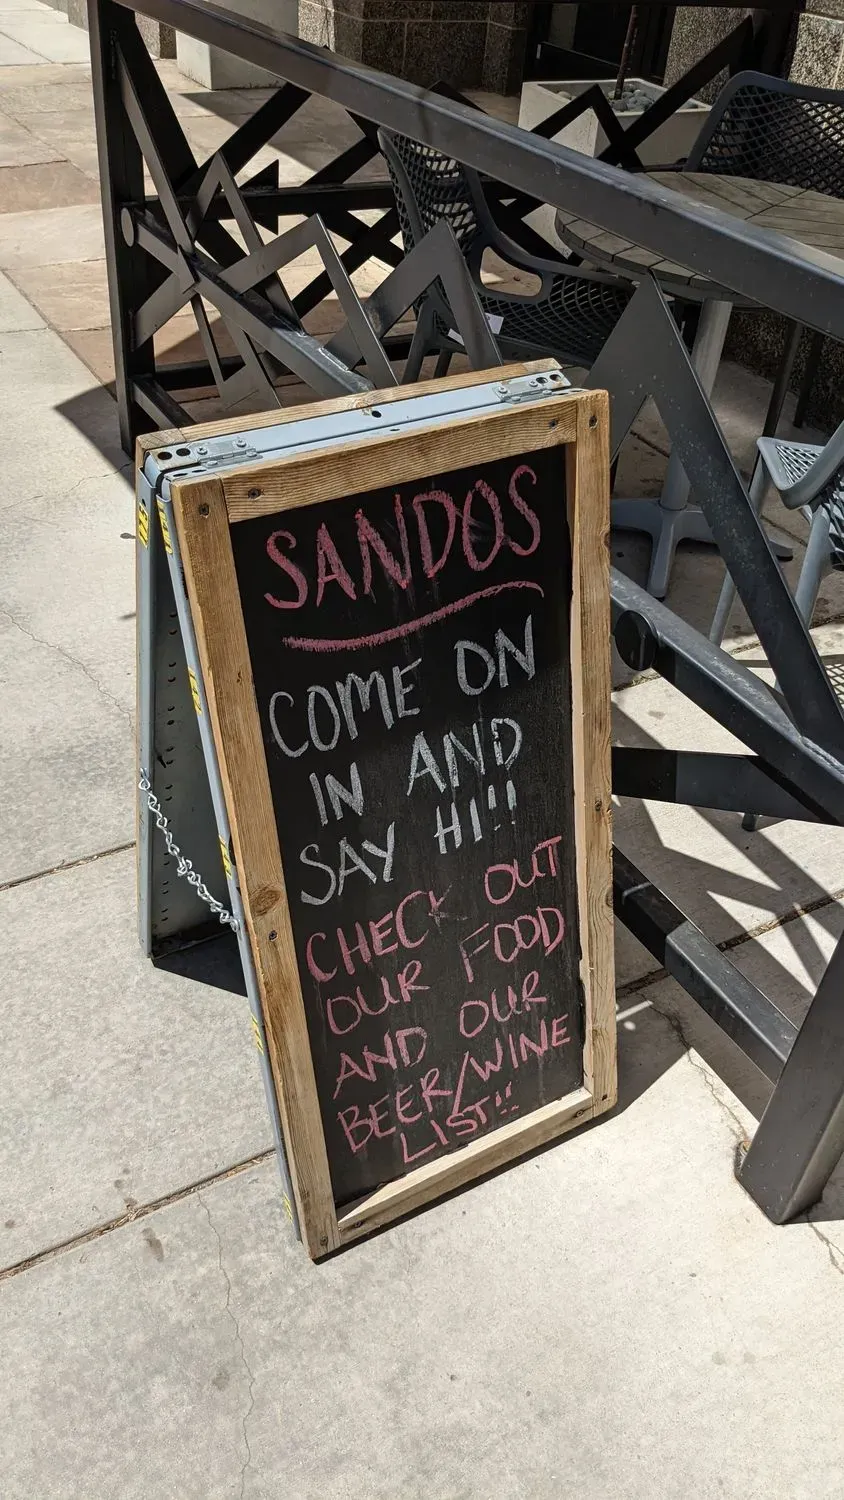 SANDOS
COME ON
IN AND
SAY HI!!
CHECK OUT
OUR FOOD
AND OUR
BEER/WINE
LIST!!